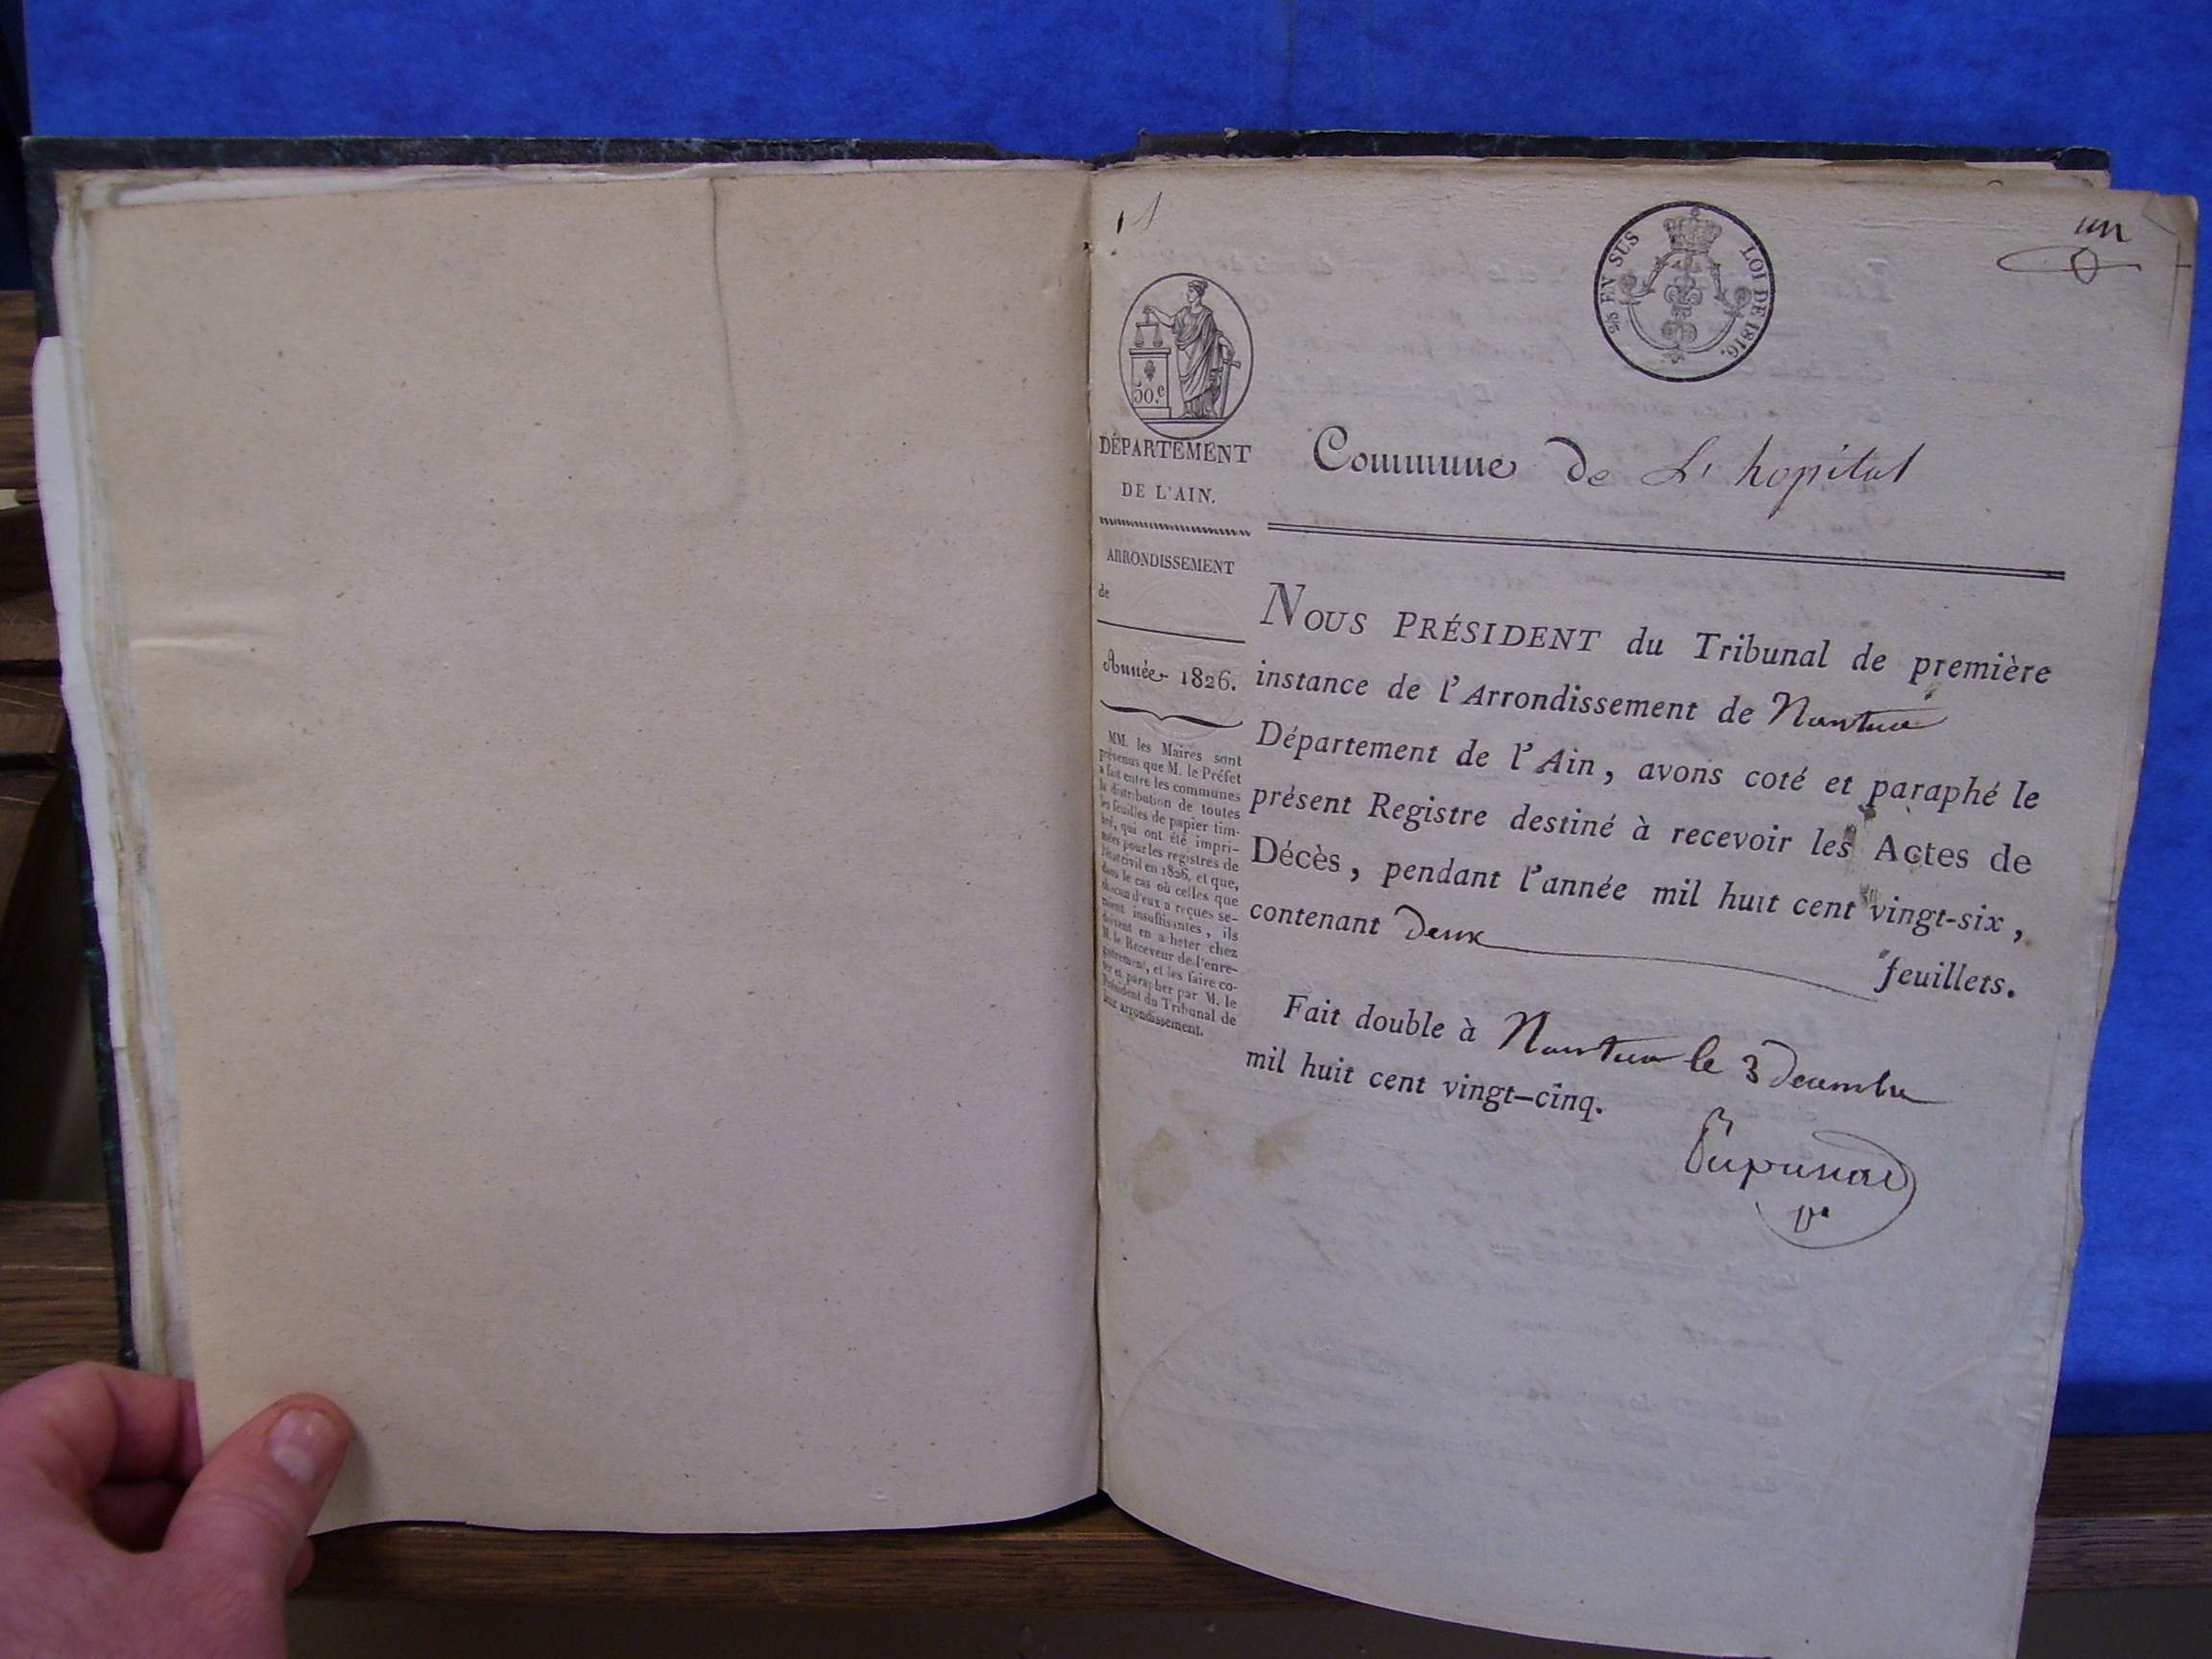 1
un
2/5 EN SUS LOI DE 1816.
50.c
DÉPARTEMENT
DE L'AIN.
ARRONDISSEMENT
de
Année 1826.
MM. les Maires sont
prévenus que M. le Préfet
a fait entre les communes
la distribution de toutes
les feuilles de papier tim-
bré, qui ont été impri-
mées pour les registres de
l'état civil en 1826, et que,
dans le cas où celles que
chacun d'eux a reçues se-
raient insuffisantes, ils
doivent en acheter chez
M. le Receveur de l'enre-
gistrement, et les faire co-
ter et parapher par M. le
Président du Tribunal de
leur arrondissement.
Commune de L'hopital
NOUS PRÉSIDENT du Tribunal de première
instance de l'Arrondissement de Nantua
Département de l'Ain, avons coté et paraphé le
présent Registre destiné à recevoir les Actes de
Décès, pendant l'année mil huit cent vingt-six,
contenant deux
feuillets.
Fait double à Nantua le 3 Decembre
mil huit cent vingt-cinq.